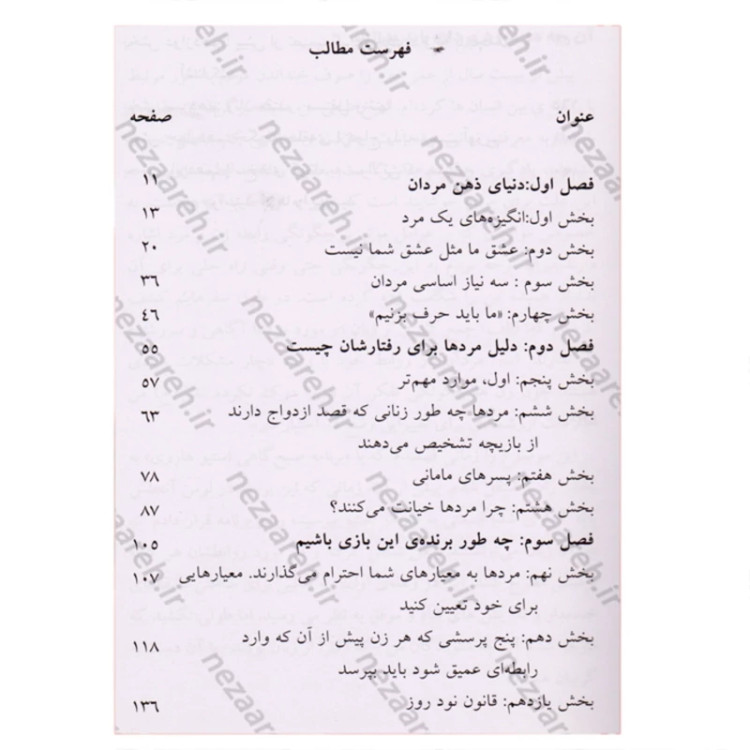 فهرست مطالب
عنوان صفحه
فصل اول:دنیای ذهن مردان ۱۱
بخش اول:انگیزه‌های یک مرد ۱۳
بخش دوم: عشق ما مثل عشق شما نیست ۲۰
بخش سوم : سه نیاز اساسی مردان ۳۶
بخش چهارم: «ما باید حرف بزنیم» ٤٦
فصل دوم: دلیل مردها برای رفتارشان چیست ۵۵
بخش پنجم: اول، موارد مهم‌تر ۵۷
بخش ششم: مردها چه طور زنانی که قصد ازدواج دارند ۶۳
از بازیچه تشخیص می‌دهند
بخش هفتم: پسرهای مامانی ۷۸
بخش هشتم: چرا مردها خیانت می‌کنند؟ ۸۷
فصل سوم: چه طور برنده‌ی این بازی باشیم ۱۰۵
بخش نهم: مردها به معیارهای شما احترام می‌گذارند. معیارهایی ۱۰۷
برای خود تعیین کنید
بخش دهم: پنج پرسشی که هر زن پیش از آن که وارد ۱۱۸
رابطه‌ای عمیق شود باید بپرسد
بخش یازدهم: قانون نود روز ۱۳۶
nezaareh.ir